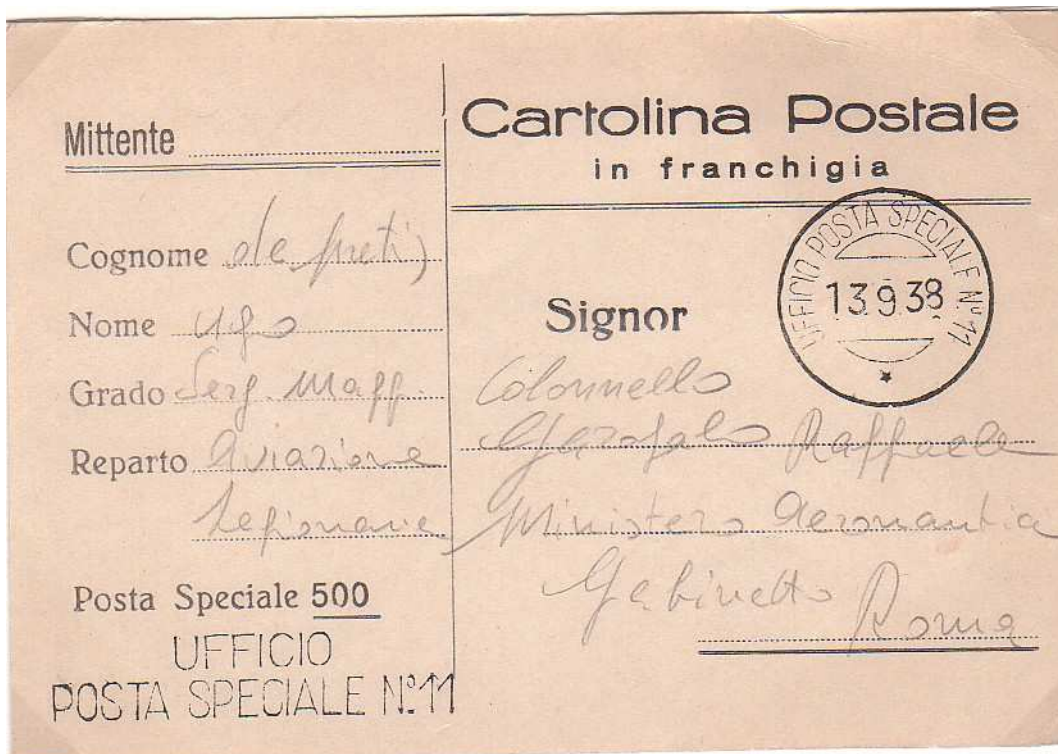 Mittente
Cognome de Preti
Nome Ugo
Grado Serg. Magg.
Reparto Aviazione
Legionaria
Posta Speciale 500
UFFICIO
POSTA SPECIALE N° 11
Cartolina Postale
in franchigia
UFFICIO POSTA SPECIALE N° 11
13.9.38
Signor
Colonnello
Garofalo Raffaele
Ministero Aeronautica
Gabinetto
Roma